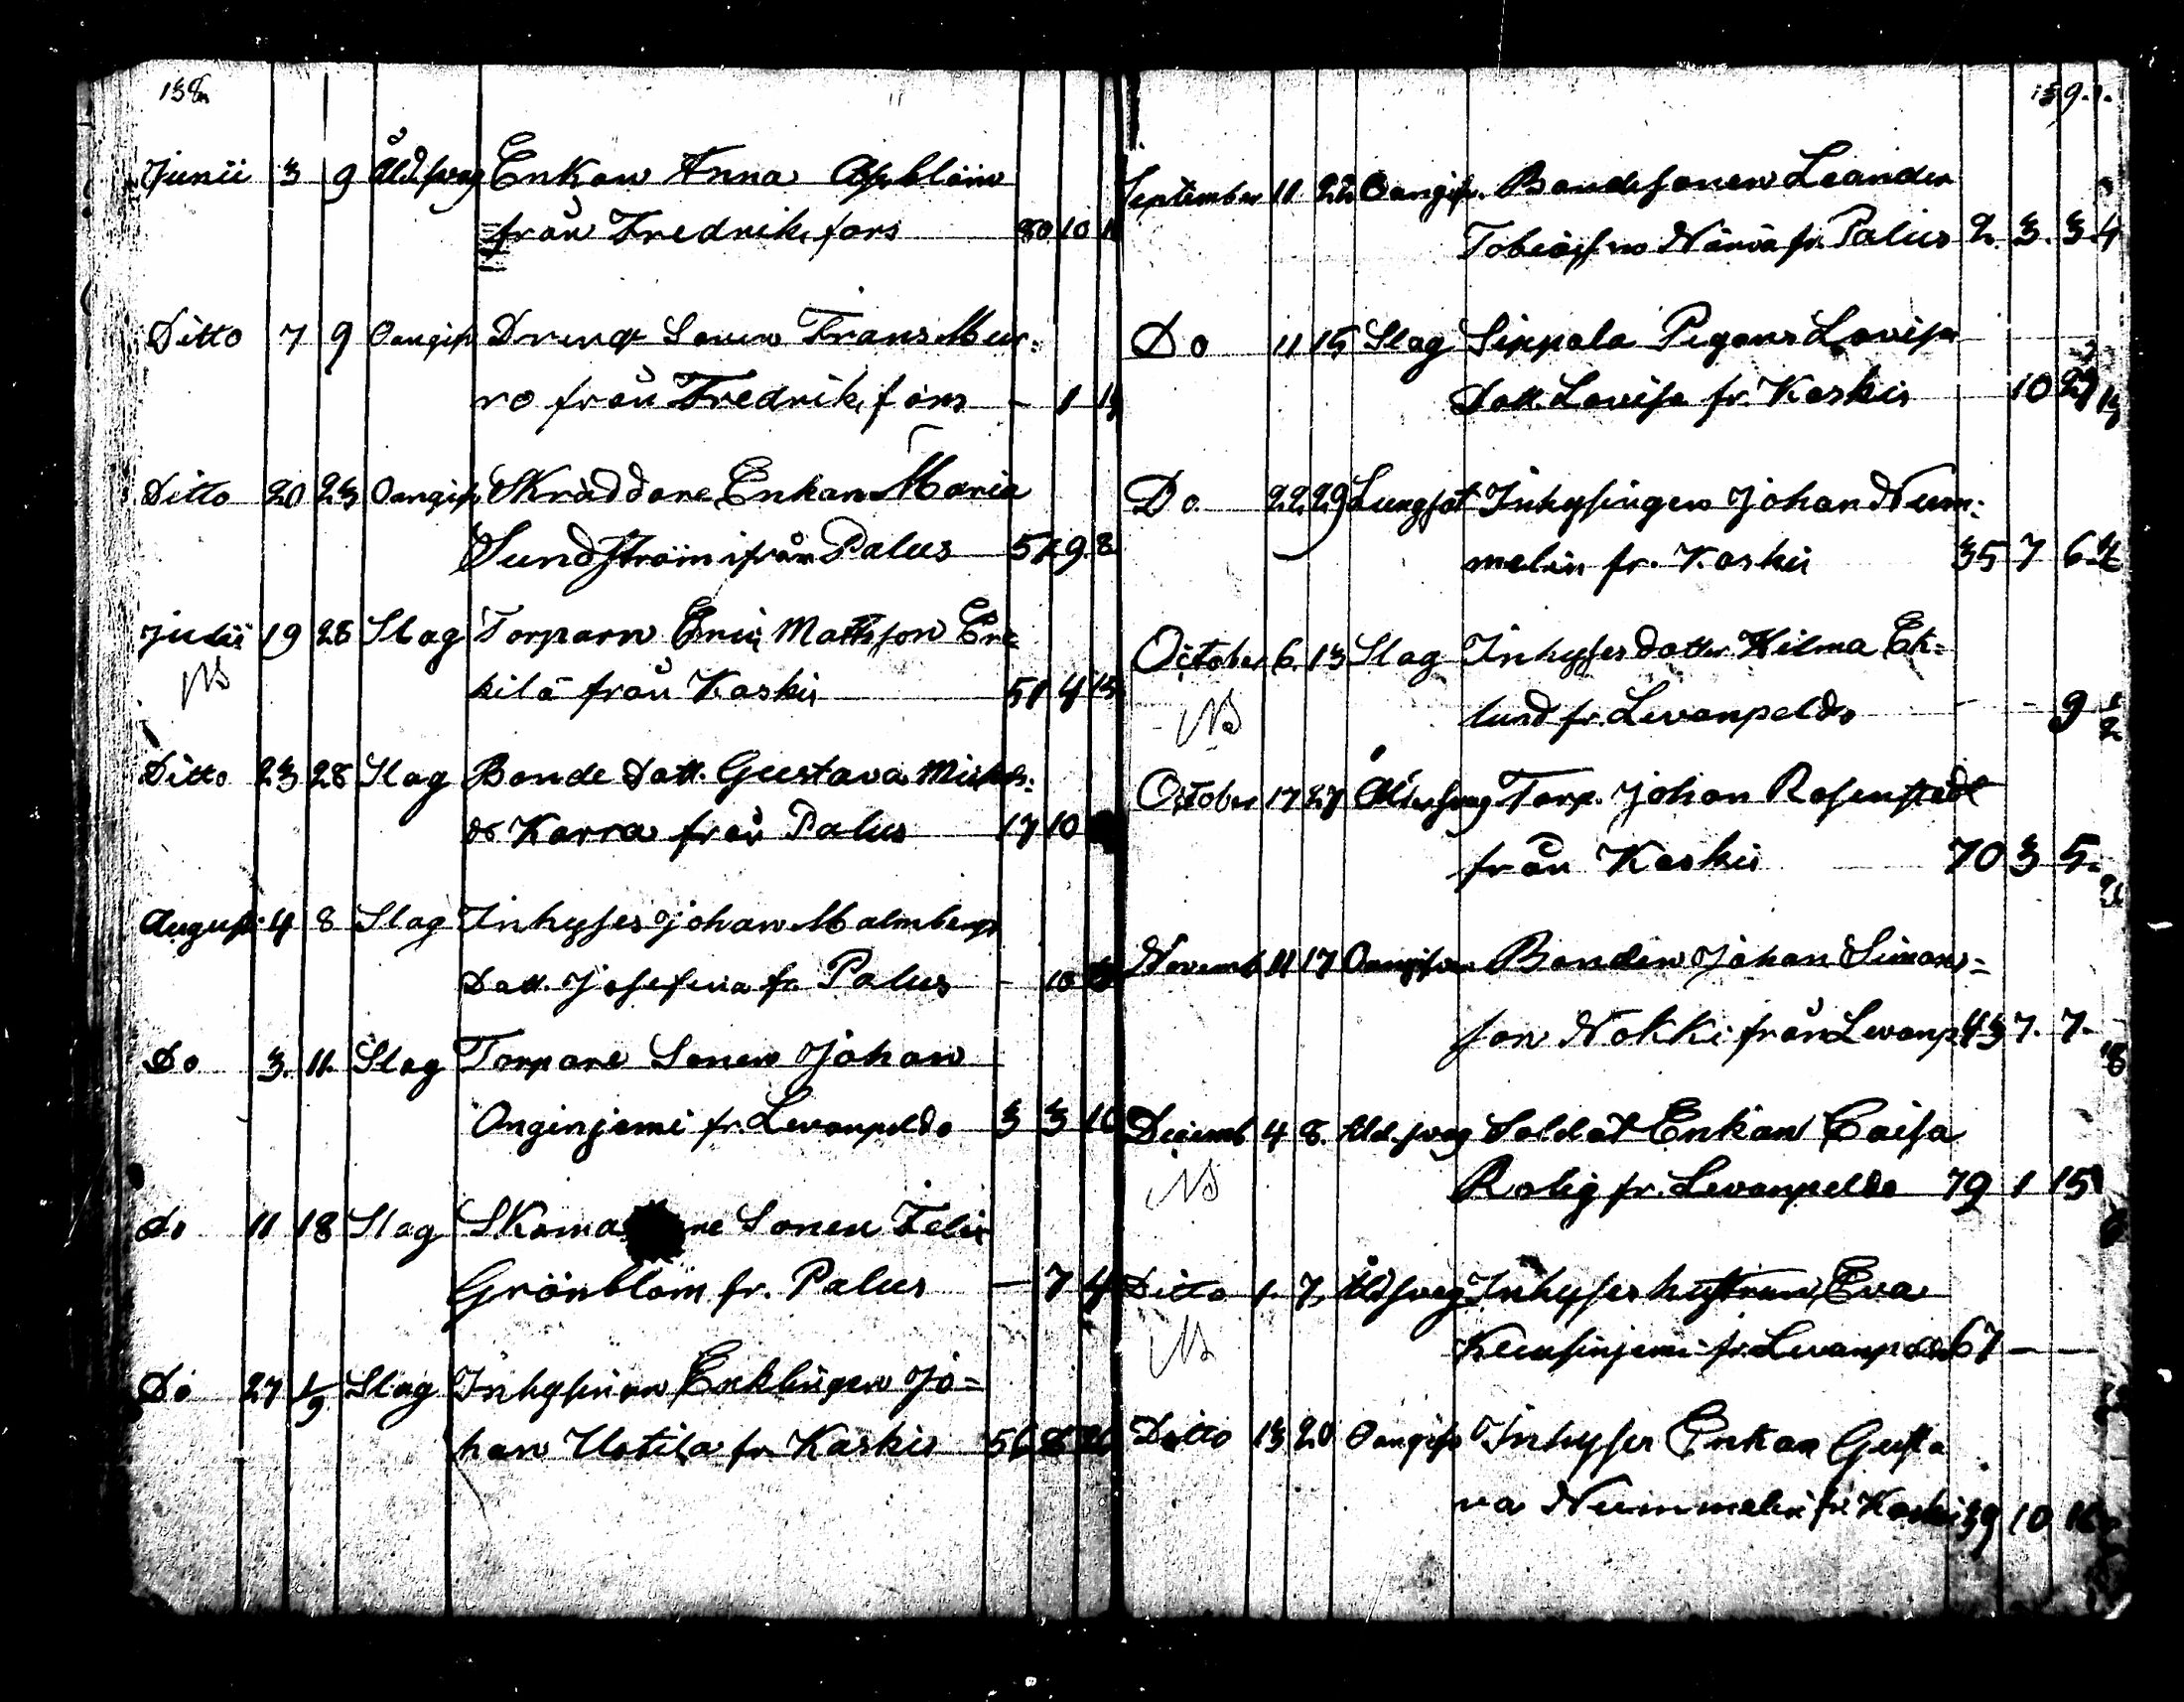 138
Junii 3 9 Åld.svag Enkan Anna Aspblom
från Fredriksfors 80 10
Ditto 7 9 Oangif. Dreng Sonen Frans Mur-
ro från Fredriksfors - 1
Ditto 20 23 Oangif. Skräddare Enkan Maria
Sundström ifrån Palus 9 8
Julii 19 28 Slag Torparn Eric Mattsson Er-
kilä från Koskis 51 4 15
NB
Ditto 23 28 Slag Bonde Dott. Gustava Mickels-
dr Karra från Palus 17 10
August 4 8 Slag Inhyses Johan Malmbergs
Dott. Josefina fr. Palus - 10
Do 3. 11. Slag Torpare Sonen Johan
Onginjemi fr. Levanpeldo 3 3 10
Do 11 18 Slag Skoma re Sonen Felix
Grönblom fr. Palus - 7 4
Do 27 1/9 Slag Inhysingen Enklingen Jo-
han Uotila fr. Koskis 56
139.
September 11 22 Oangif. Bondesonen Leander
Tobiasson Närvä fr. Palus 2. 3. 3
Do 11 15 Slag Sippola Pigans Lovisa
Dott. Lovisa fr. Koskis 10 27
Do. 22 29 Lungsot Inhysingen Johan Num-
melin fr. Koskis 35 7 6
October 6. 13 Slag Inhyses dotter Hilma Ek-
lund fr. Levanpeldo - - 9
NB
October 17 27 Åldersvag Torp. Johan Rosenstedt
från Koskis 70 3 5
Novemb 11 17 Oangifven Bonden Johan Simons-
son Nokki från Levanp. 43 7. 7.
Decemb 4 8. Åld.svag Soldat Enkan Caisa
Rolig fr. Levanpeldo 79 1 15
NB
Ditto 1. 7. Åldsvag Inhyses hustrun Eva
fr. Levanpeldo 67 - -
NB
Ditto 13 20 Oangif. Inhyses Enkan Gusta
va Nummelin fr. Koskis 39 10 16